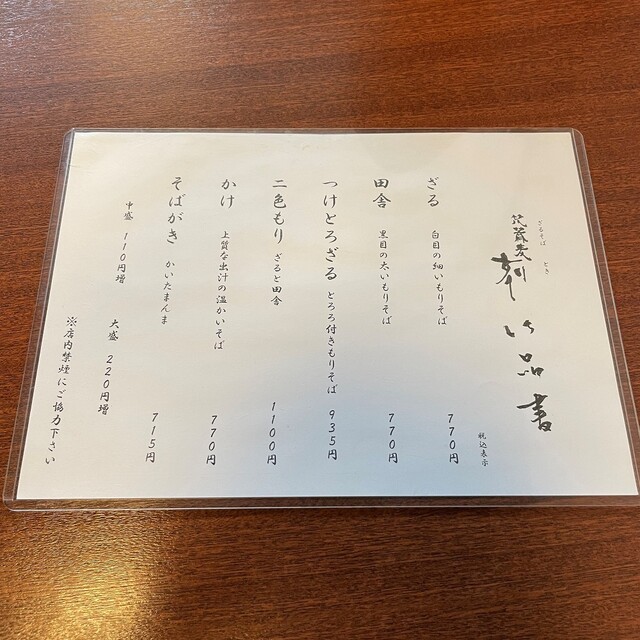 ざるそば とき
笊蕎麦 刻 お品書
税込表示
ざる 白目の細いもりそば 770円
田舎 黒目の太いもりそば 770円
つけとろざる とろろ付きもりそば 935円
二色もり ざると田舎 1100円
かけ 上質な出汁の温かいそば 770円
そばがき かいたまんま 715円
中盛 110円増 大盛 220円増
※店内禁煙にご協力下さい